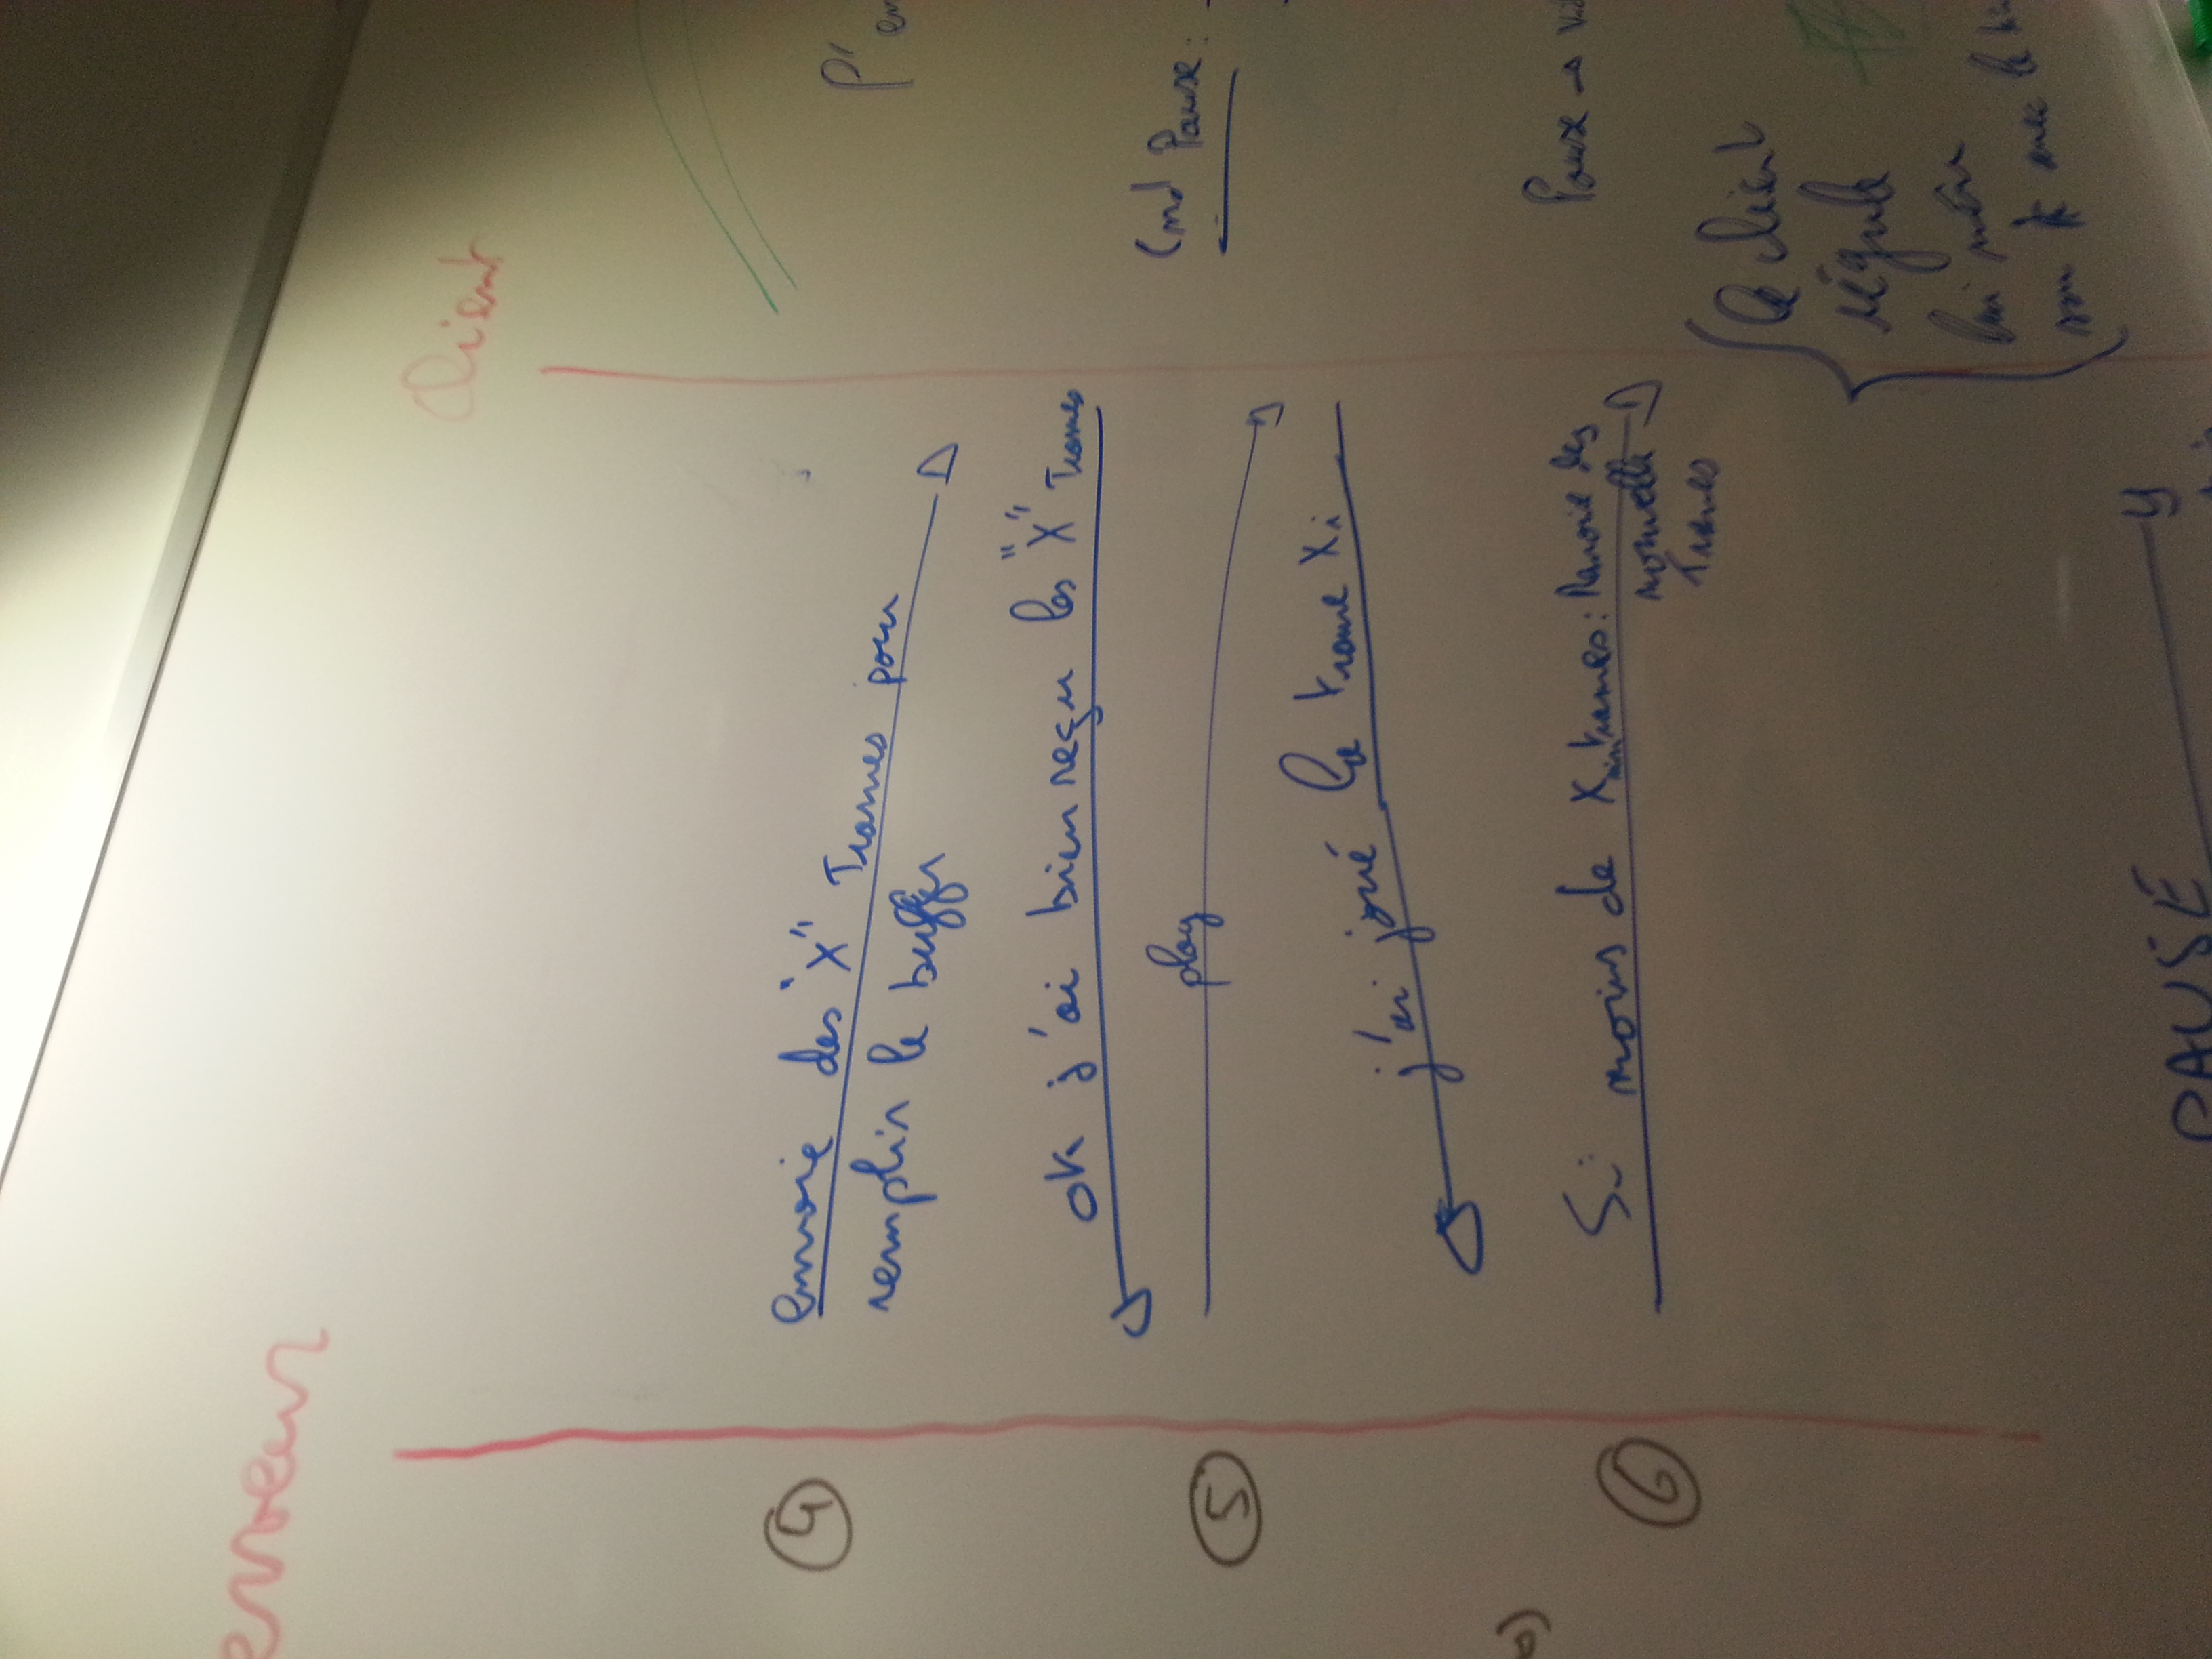 erveur
Client
4
envoie des "X" Trames pour
remplir le buffer
ok j'ai bien reçu les "X" Trames
5
play
j'ai joué la trame Xi
6
Si moins de Xmin trames: Renvoie des
nouvelle
Trames
Cmd Pause:
Pause → vi
le client
régule
lui même
son avec le
PAUSE